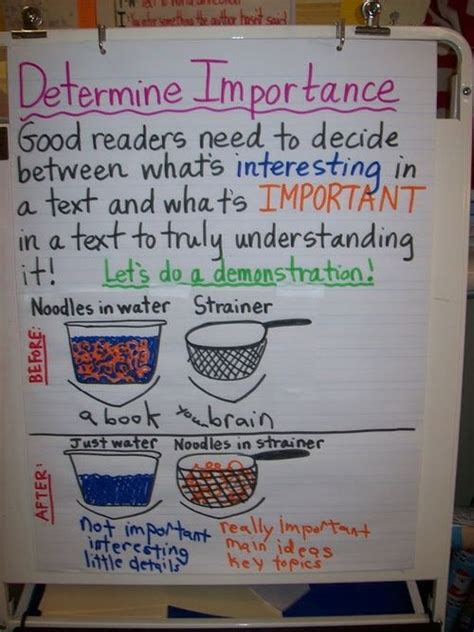 to infer something the author hasn't said
Determine Importance
Good readers need to decide
between what's interesting in
a text and what's IMPORTANT
in a text to truly understanding
it! Let's do a demonstration!
Noodles in water Strainer
BEFORE:
a book your brain
Just water Noodles in strainer
AFTER:
not important really important
interesting main ideas
little details key topics